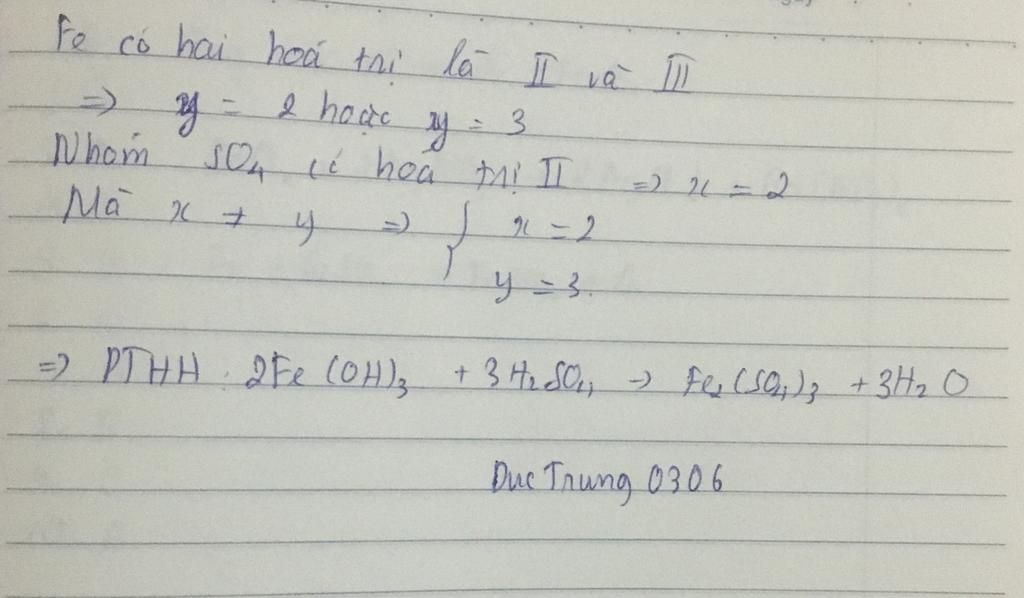 Fe có hai hoá trị là II và III
=> y = 2 hoặc y = 3
Nhóm SO4 có hoá trị II => x = 2
Mà x ≠ y => { x = 2
y = 3.
=> PTHH : 2Fe(OH)3 + 3H2SO4 -> Fe2(SO4)3 + 3H2O
Duc Trung 0306